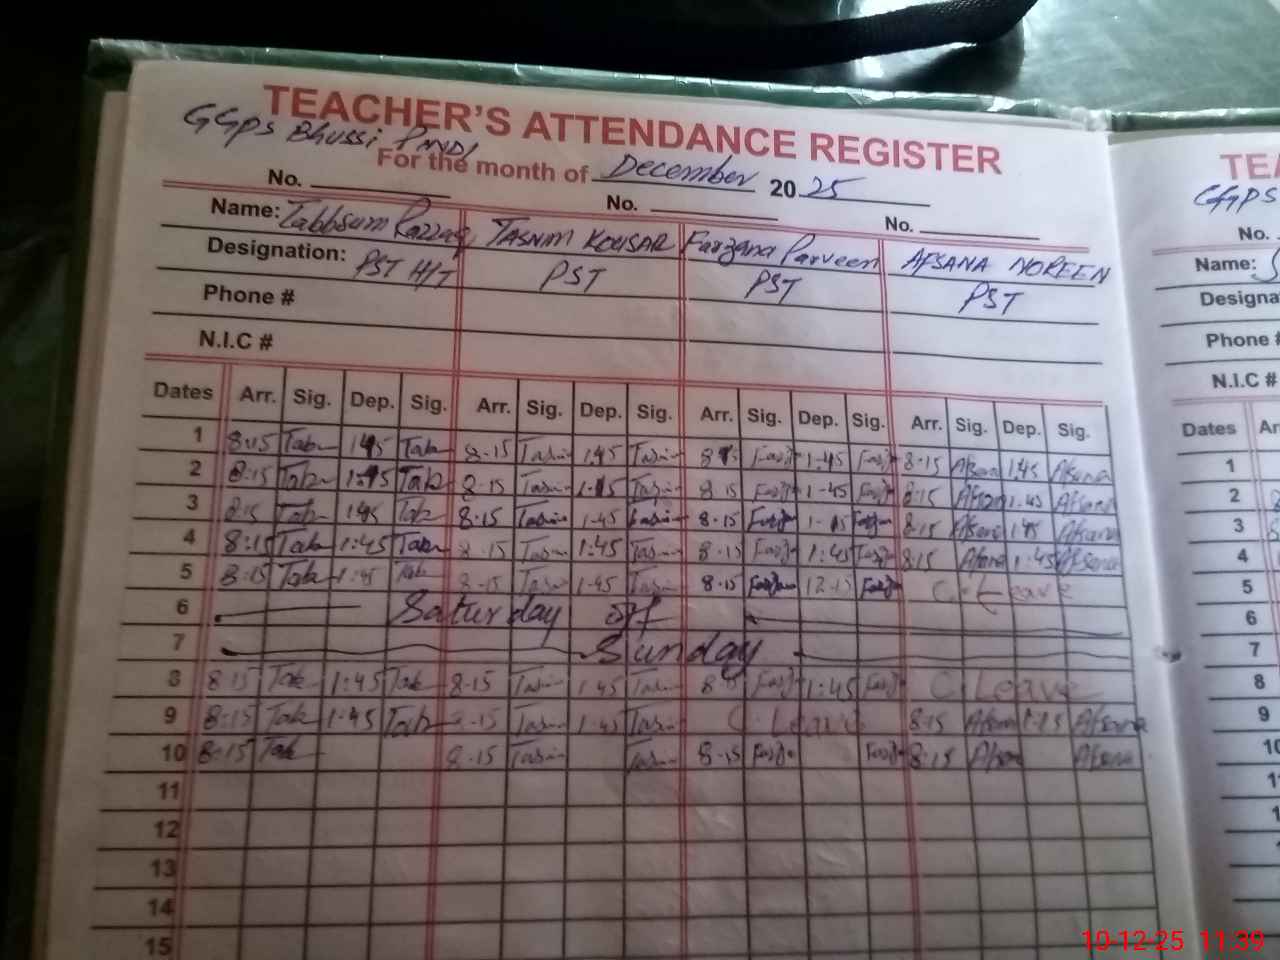 TEACHER'S ATTENDANCE REGISTER
GGPS Bhussi PMDI
For the month of December 2025
No. No. No.
Name: Tabbsum Razzaq TASNIM KOUSAR Farzana Parveen AFSANA NOREEN
Designation: PST H/T PST PST PST
Phone #
N.I.C #
Dates Arr. Sig. Dep. Sig. Arr. Sig. Dep. Sig. Arr. Sig. Dep. Sig. Arr. Sig. Dep. Sig.
1 8:15 Tab 1:45 Tab 8-15 Tasnim 1:45 Tasnim 8 1-45 8-15 Afsana 1:45 Afsana
2 8:15 Tab 1:45 Tab 8-15 Tasnim 1-45 Tasnim 8 15 1-45 8:15 Afsana 1:45 Afsana
3 8:15 Tab 1:45 Tab 8-15 Tasnim 1-45 Tasnim 8-15 8:15 Afsana 1:45 Afsana
4 8:15 Tab 1:45 Tab 8-15 Tasnim 1:45 Tasnim 8-15 1:45 8:15 Afsana 1:45 Afsana
5 8:15 Tab 1:45 Tab 8-15 Tasnim 1-45 Tasnim 8-15 C. Leave
6 Saturday off
7 Sunday
8 8:15 Tab 1:45 Tab 8-15 Tasnim 1 45 Tasnim 1:45 C Leave
9 8:15 Tab 1:45 Tab 8-15 Tasnim 1-45 Tasnim C. Leave 8:15 Afsana Afsana
10 8:15 Tab 8-15 Tasnim Tasnim 8-15 8:15 Afsana Afsana
11
12
13
14
15
TEA
GGPS
No.
Name: S
Designa
Phone #
N.I.C #
Dates Ar
1
2
3
4
5
6
7
8
9
10
11
12
10-12-25 11:39